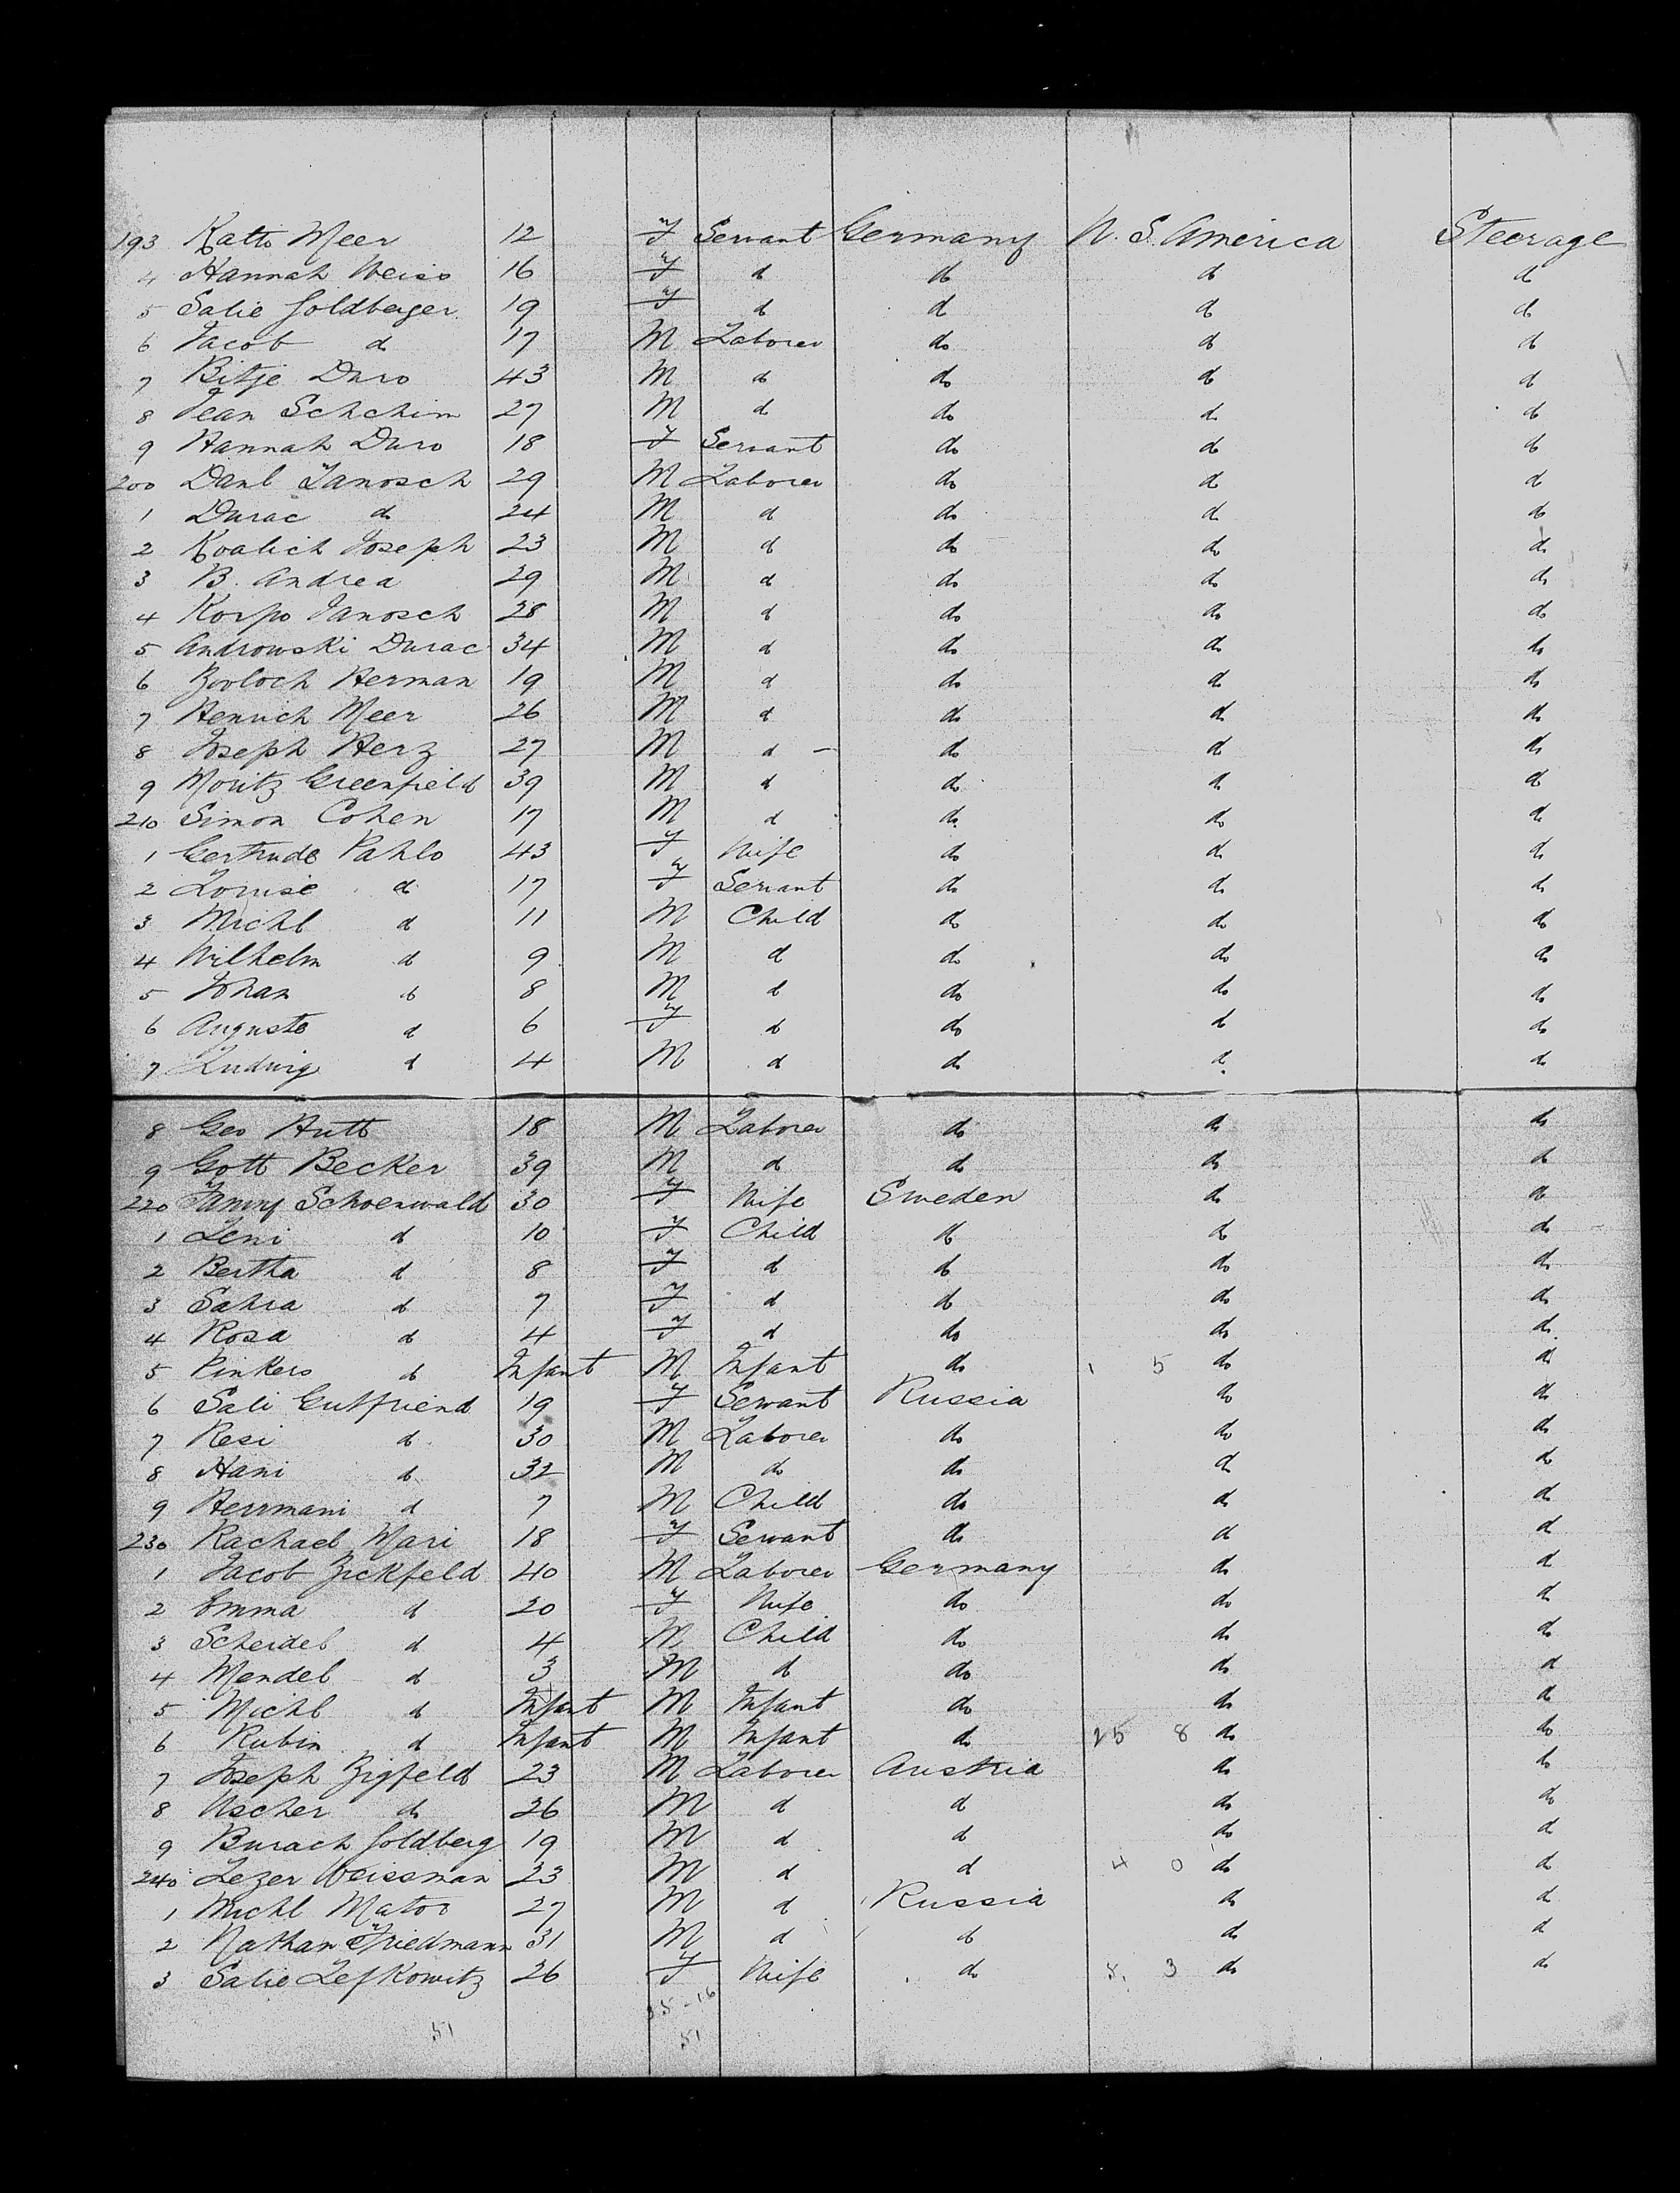 193 Katti Meer 12 F Servant Germany U. S. America Steerage
4 Hannah Weiss 16 F do do do do
5 Salie Goldberger 19 F do do do do
6 Jacob do 17 M Laborer do do do
7 Bitje Duro 43 M do do do do
8 Jean Schchim 27 M do do do do
9 Hannah Duro 18 F Servant do do do
200 Danl Janosch 29 M Laborer do do do
1 Durac do 24 M do do do do
2 Koalich Joseph 23 M do do do do
3 B. Andrea 29 M do do do do
4 Korpo Janosch 28 M do do do do
5 Androwski Durac 34 M do do do do
6 Zooloch Herman 19 M do do do do
7 Henrich Meer 26 M do do do do
8 Joseph Herz 27 M do – do do do
9 Moritz Greenfield 39 M do do do do
210 Simon Cohen 17 M do do do do
1 Gertrude Pahlo 43 F Wife do do do
2 Louise do 17 F Servant do do do
3 Michl do 11 M Child do do do
4 Wilhelm do 9 M do do do do
5 Johan do 8 M do do do do
6 Auguste do 6 F do do do do
7 Ludwig do 4 M do do do do
8 Geo Hutt 18 M Laborer do do do
9 Gott Becker 39 M do do do do
220 Fanny Schoenwald 30 F Wife Sweden do do
1 Leni do 10 F Child do do do
2 Bertha do 8 F do do do do
3 Sahra do 7 F do do do do
4 Rosa do 4 F do do do do
5 Pinkers do Infant M Infant do 1 5 do do
6 Sali Gutfriend 19 F Servant Russia do do
7 Resi do 30 M Laborer do do do
8 Hani do 32 M do do do do
9 Herrmani do 7 M Child do do do
230 Rachael Mari 18 F Servant do do do
1 Jacob Zickfeld 40 M Laborer Germany do do
2 Emma do 20 F Wife do do do
3 Scheidel do 4 M Child do do do
4 Mendel do 3 M do do do do
5 Michl do Infant M Infant do do do
6 Rubin do Infant M Infant do 25 8 do do
7 Joseph Zigfeld 23 M Laborer Austria do do
8 Ascher do 26 M do do do do
9 Burach Goldberg 19 M do do do do
240 Lezer Weissman 23 M do do 4 0 do do
1 Michl Mator 27 M do Russia do do
2 Nathan Friedmann 31 M do do do do
3 Salie Lefkowitz 26 F Wife do 5, 3 do do
35-16
51 51